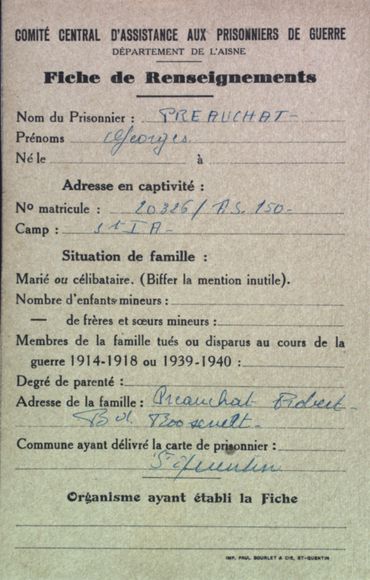 COMITÉ CENTRAL D'ASSISTANCE AUX PRISONNIERS DE GUERRE
DÉPARTEMENT DE L'AISNE
Fiche de Renseignements
Nom du Prisonnier : PREAUCHAT-
Prénoms Georges
Né le à
Adresse en captivité :
No matricule : 20326/ A.S. 150-
Camp : St I A-
Situation de famille :
Marié ou célibataire. (Biffer la mention inutile).
Nombre d'enfants mineurs :
— de frères et sœurs mineurs :
Membres de la famille tués ou disparus au cours de la
guerre 1914-1918 ou 1939-1940 :
Degré de parenté :
Adresse de la famille : Preauchat Robert-
Bd Roosevelt-
Commune ayant délivré la carte de prisonnier :
St Quentin
Organisme ayant établi la Fiche
IMP. PAUL BOURLET & CIE, ST-QUENTIN